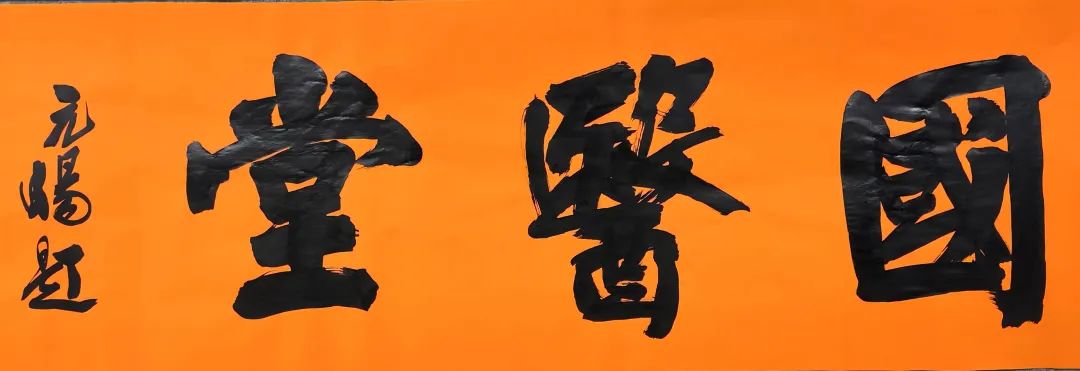 國醫堂
元暘題